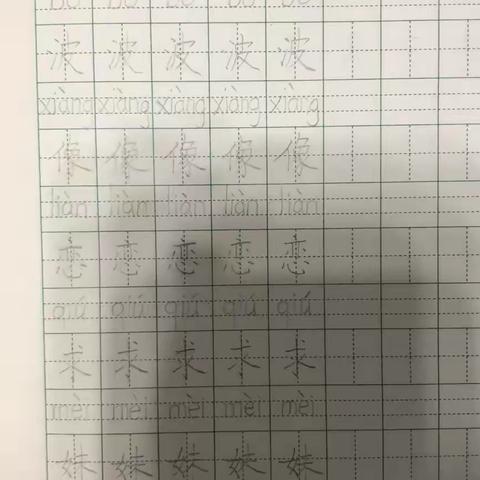 波 波 波 波 波
xiàng xiàng xiàng xiàng xiàng
像 像 像 像 像
liàn liàn liàn liàn liàn
恋 恋 恋 恋 恋
qiú qiú qiú qiú qiú
求 求 求 求 求
mèi mèi mèi mèi mèi
妹 妹 妹 妹 妹